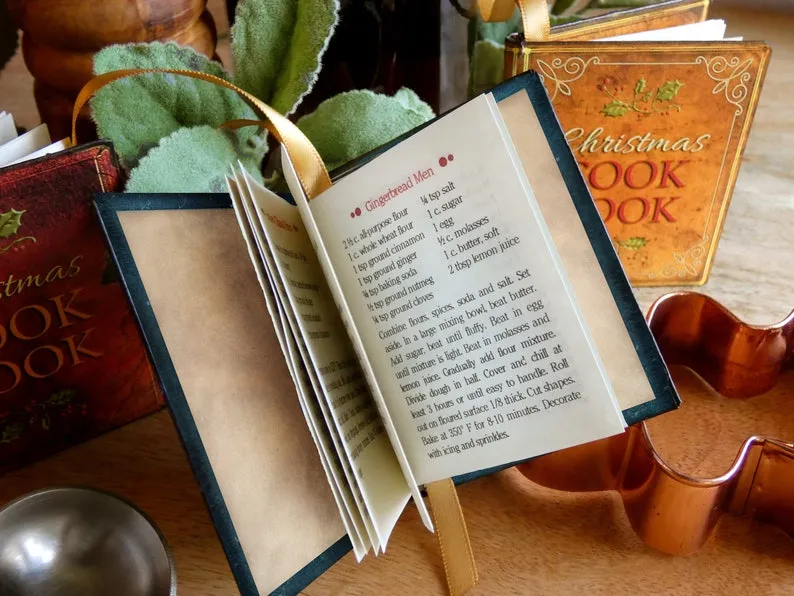 Gingerbread Men
2 ½ c. all-purpose flour
1 c. whole wheat flour
1 tsp ground cinnamon
1 tsp ground ginger
¾ tsp baking soda
½ tsp ground nutmeg
¼ tsp ground cloves
¼ tsp salt
1 c. sugar
1 egg
½ c. molasses
1 c. butter, soft
2 tbsp lemon juice
Combine flours, spices, soda and salt. Set
aside. In a large mixing bowl, beat butter.
Add sugar; beat until fluffy. Beat in egg
until mixture is light. Beat in molasses and
lemon juice. Gradually add flour mixture.
Divide dough in half. Cover and chill at
least 3 hours or until easy to handle. Roll
out on floured surface 1/8 thick. Cut shapes.
Bake at 350° F for 8-10 minutes. Decorate
with icing and sprinkles.
Christmas
COOK
OOK
ristmas
OOK
OOK